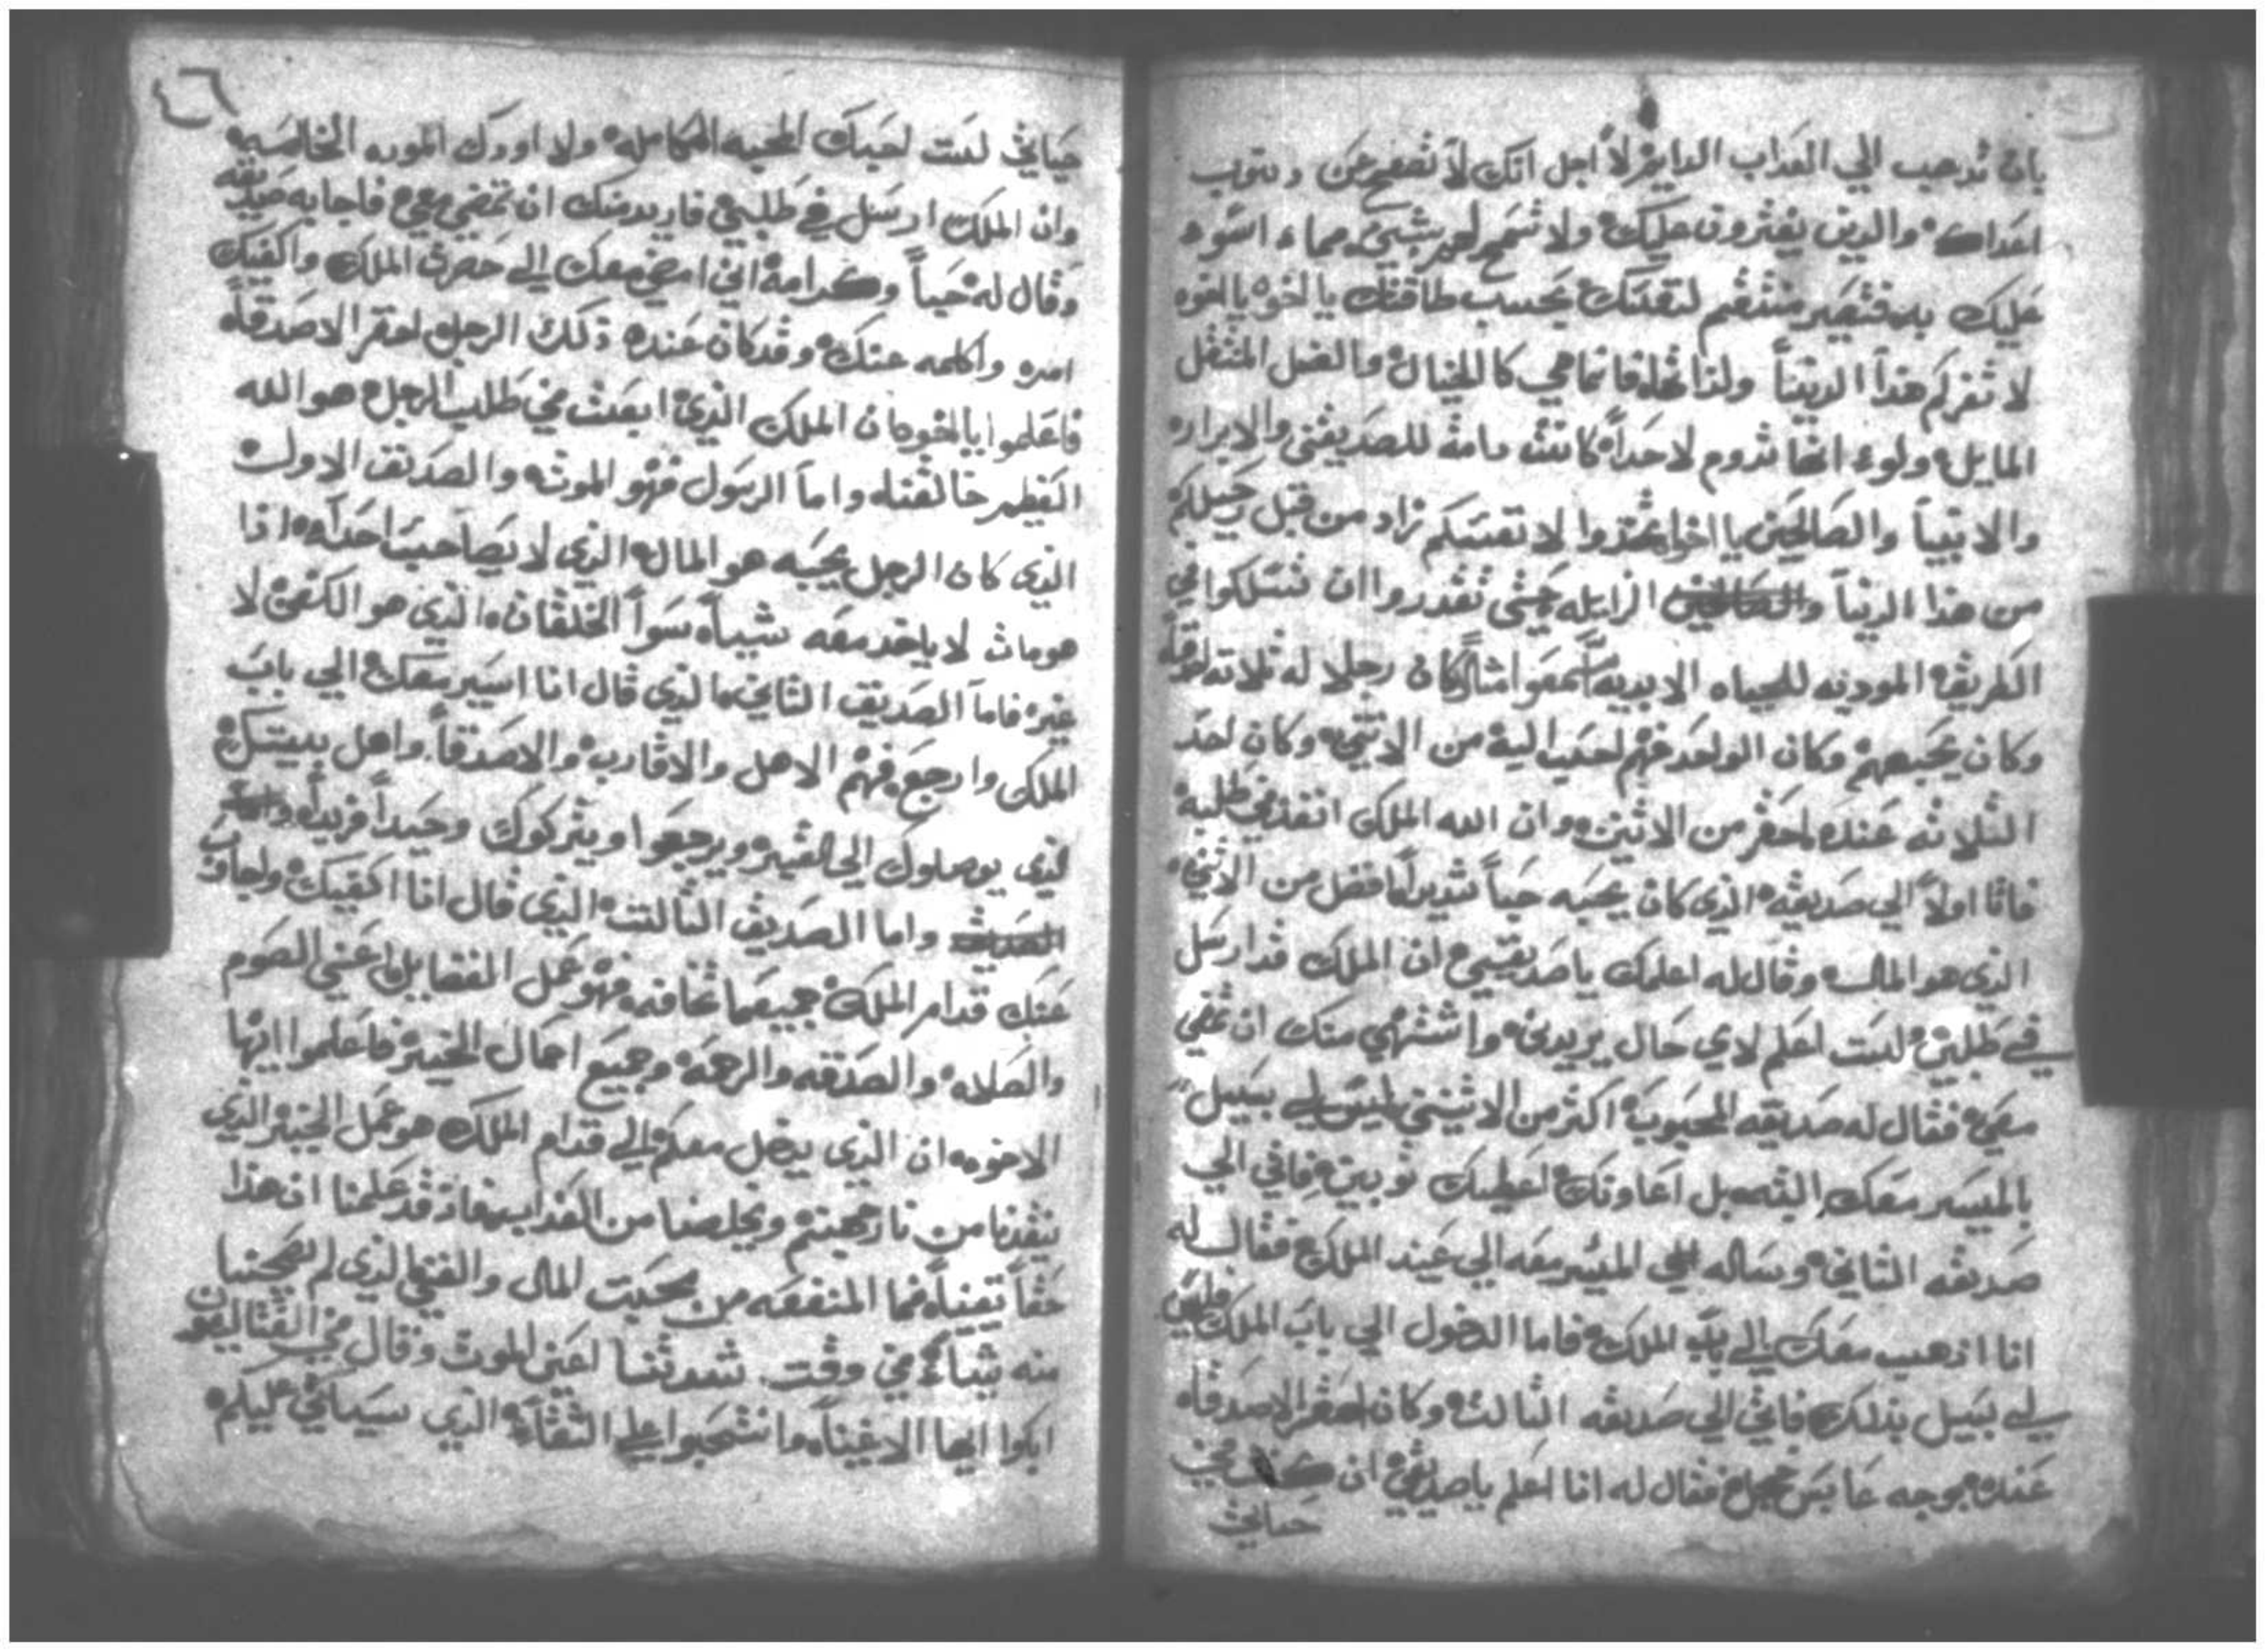 بان تدهب الي العداب الدايم لا اجل انك لا تصفح عن دنوب
اعداك والدين يفترون عليك ولا تسمح لهم بشيء مما اسوء
عليك به فتصير منتقم لنفسك بحسب طاقتك يا لخوه يا لخوه
لا تغركم هدا الدنيا ولذاتها فانها هي كا الخيال والضل المنتقل
المايل ولوء انها تدوم لاحدا كانت دامة للصديقين والابرار
والانبيا والصالحين يا اخوا تخدوا لانفسكم زاد من قبل رحيلكم
من هذا الدنيا الزايله حيتي تقدروا ان تسلكوا في
الطريق المودنه للحياه الابديه اسمعوا مثال كان رجلا له تلاته اصدقا
وكان يحبهم وكان الواحد منهم احب اليه من الاتنين وكان احد
التلاته عنده احقر من الاتنين وان الله الملك انفذ في طلبه
فاتا اولا الي صديقه الذي كان يحبه حبا شديدا افضل من الاتنين
الذي هو المال وقال له اعلمك يا صديقي ان الملك قد ارسل
في طلبي لست اعلم لاي حال يريدني واشتهي منك ان تمضي
معي فقال له صديقه المحبوب اكثر من الاتنين ليس لي سبيل
بالمسير معك البته بل اعاونك اعطيك توبين فاتي الي
صديقه التاني وساله الي المسير معه الي عند الملك فقال له
انا اذهب معك الي باب الملك فاما الدخول الي باب الملك فليس
لي سبيل بذلك فاتي الي صديقه التالت وكان احقر الاصدقاه
عنده بوجه عابس خجل فقال له انا اعلم يا صديقي ان كنت في
حياتي
٤٦
حياتي لست احبك المحبه الكامله ولا اودك الموده الخالصه
وان الملك ارسل في طلبي فاريد منك ان تمضي معي فاجابه صديقه
وقال له حبا وكرامة اني امضي معك الي حضرت الملك واكفيك
امره واكلمه عنك وقد كان عنده ذلك الرجل احقر الاصدقاه
فاعلموا يا الخوه ان الملك الذي ابعث في طلب الرجل هو الله
العظيم خالقنا واما الرسول فهو الموت والصديق الاول
الذي كان الرجل يحبه هو المال الذي لا يصاحب احداه اذا
هو مات لا ياخد معه شيا سوا الخلقان الذي هو الكفن لا
غير فاما الصديق التاني الذي قال انا اسير معك الي باب
الملك وارجع فهم الاهل والاقارب والاصدقا واهل بيتك
الذي يوصلوك الي القبر ويرجعوا ويتركوك وحيدا فريدا
واما الصديق التالت الذي قال انا اكفيك ولجاوب
عنك قدام الملك جميع ما تخافه فهو عمل الفضايل اعني الصوم
والصلاه والصدقه والرحمه وجميع اعمال الخير فاعلموا ايها
الاخوه ان الذي يدخل معكم الي قدام الملك هو عمل الخير الذي
ينقدنا من نار جهنم ويخلصنا من العذاب فاد قد علمنا ان هذا
حقا يقينا فما المنفعه من محبت المال والغني الذي لم يصحبنا
منه شيا في وقت شدتنا اعني الموت وقال في القتاليقون
ابكوا ايها الاغنياه وانتحبوا علي الشقاء الذي سياتي عليكم